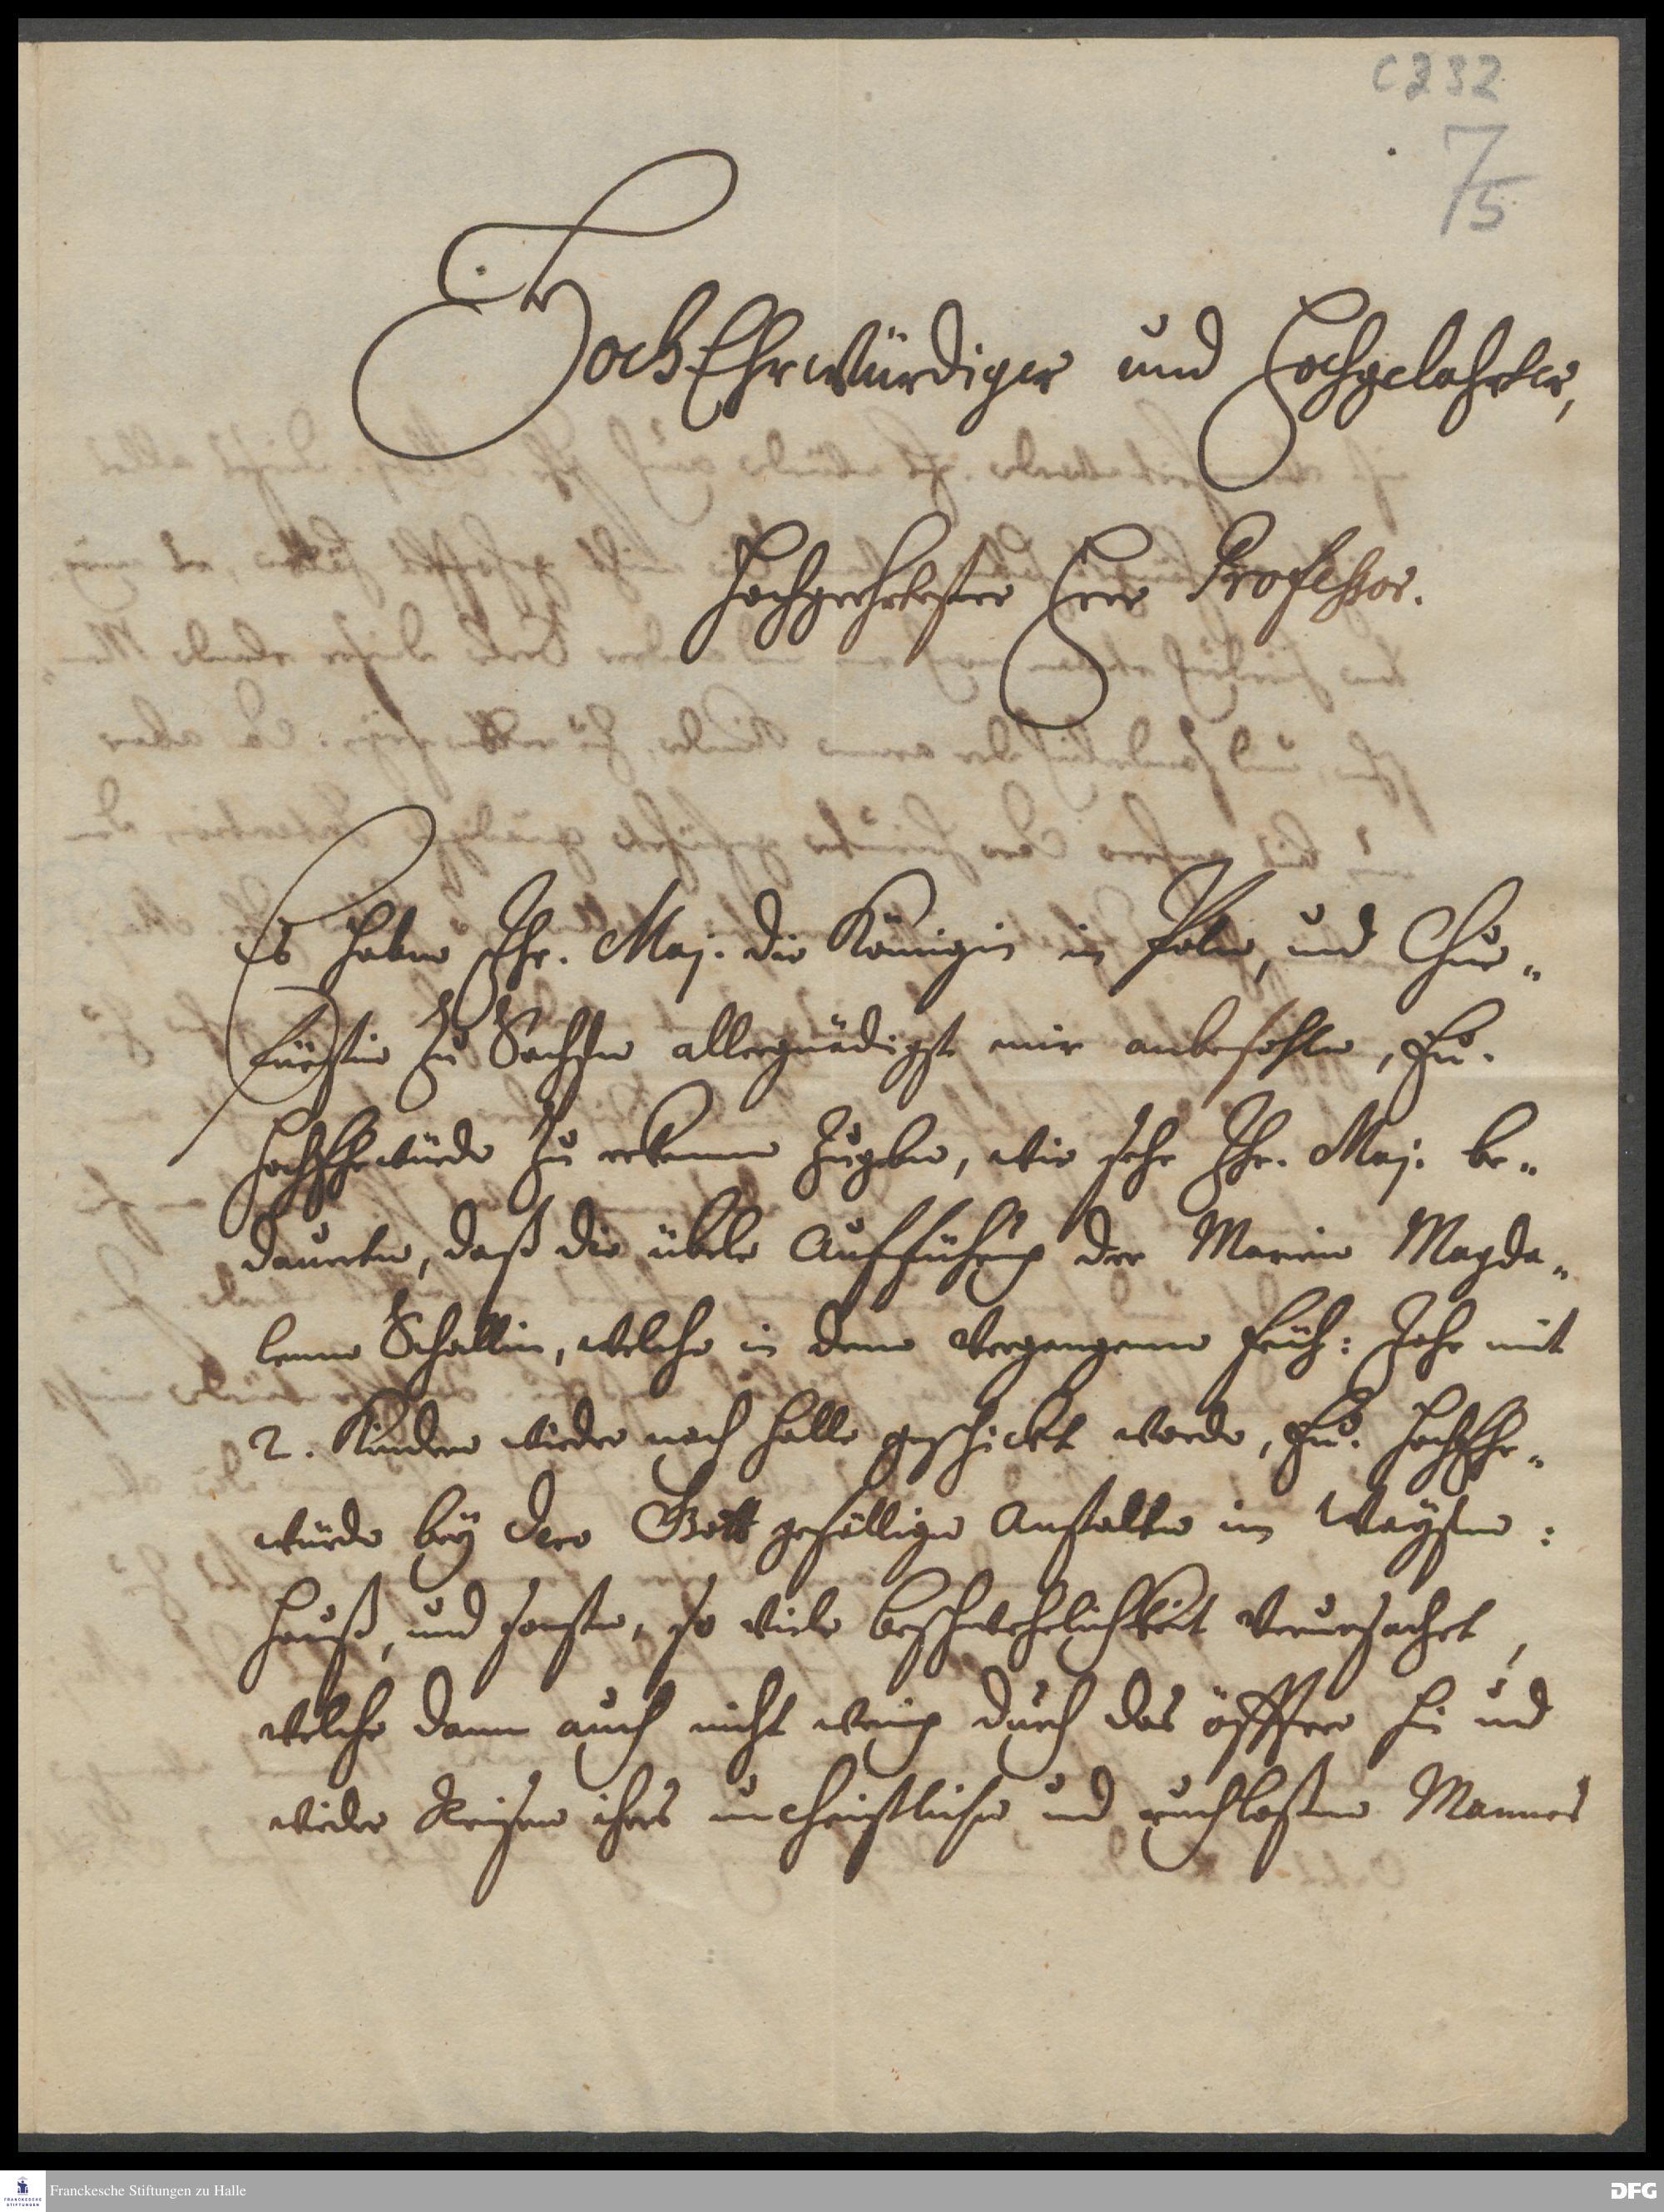 C 232
7/5
HochEhrwürdiger und Hochgelahrter,
Hochgeehrtester Herr Professor.
Es haben Ihr. Maj. die Königin in Polen, und Chur-
fürstin zu Sachsen allergnädigst mir anbefohlen, Eu.
HochEhrwürde zu erkennen zugeben, wie sehr Ihr. Maj. be-
dauerten, daß die übele Aufführung der Marien Magda-
lenen Schallin, welche in dem vergangenen Früh: Jahr mit
2. Kindern wieder nach Halle geschickt worde, Eu. HochEhr-
würde bey dero Gott gefälligen Anstalten im Waysen:
Hauß, und sonsten, so viele beschwehrlichkeit verursachet,
welche dann auch nicht wenig durch das öfftere hin und
wieder Reisen ihres unchristlichen und ruchloßen Mannes
Franckesche Stiftungen zu Halle
DFG